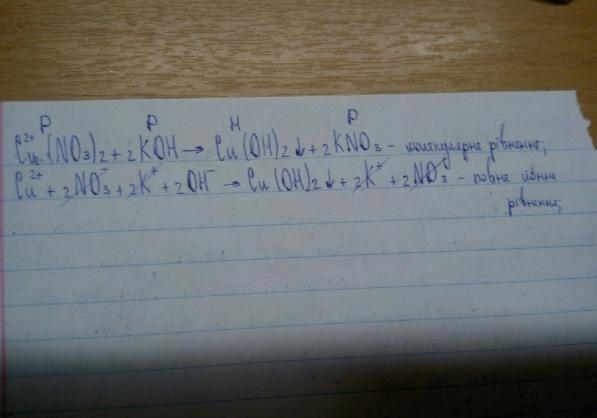 Р Р Н Р
Cu²⁺(NO₃)₂ + 2KOH → Cu(OH)₂↓ + 2KNO₃ - молекулярне рівняння;
Cu²⁺ + 2NO₃⁻ + 2K⁺ + 2OH⁻ → Cu(OH)₂↓ + 2K⁺ + 2NO₃ - повне йонне
рівняння;